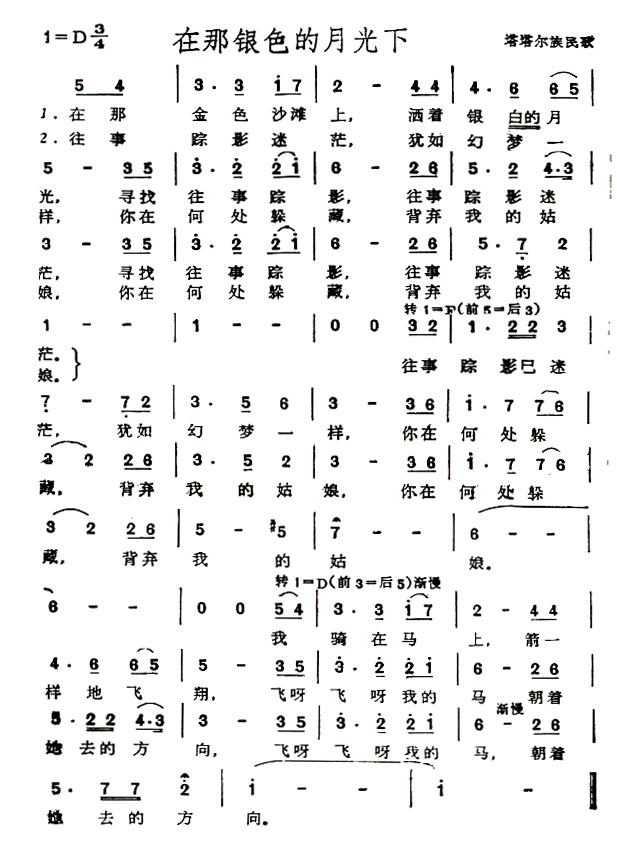 1=D 3/4 在那银色的月光下 塔塔尔族民歌
5 4 | 3· 3 i 7 | 2 - 4 4 | 4· 6 6 5 |
1.在那 金色沙滩 上，洒着 银 白的月
2.往事 踪影迷 茫，犹如 幻 梦一
5 - 3 5 | 3· 2 2 i | 6 - 2 6 | 5· 2 4·3 |
光，寻找 往事踪 影，往事 踪影迷
样，你在 何处躲 藏，背弃 我的姑
3 - 3 5 | 3· 2 2 i | 6 - 2 6 | 5· 7 2 |
茫，寻找 往事踪 影，往事 踪影迷
娘，你在 何处躲 藏，背弃 我的姑
转1=F(前5=后3)
1 - - | 1 - - | 0 0 3 2 | 1· 2 2 3 |
茫。 往事 踪影已迷
娘。
7 - 7 2 | 3· 5 6 | 3 - 3 6 | 1· 7 7 6 |
茫，犹如 幻梦一 样，你在 何处躲
3 2 2 6 | 3· 5 2 | 3 - 3 6 | 1· 7 7 6 |
藏，背弃 我的姑 娘，你在 何处躲
3 2 2 6 | 5 - #5 | 7 - - | 6 - - |
藏，背弃 我 的 姑 娘。
转1=D(前3=后5)渐慢
6 - - | 0 0 5 4 | 3· 3 i 7 | 2 - 4 4 |
我 骑在马 上，箭一
4· 6 6 5 | 5 - 3 5 | 3· 2 2 i | 6 - 2 6 |
样地飞 翔，飞呀 飞呀我的 马 朝着
渐慢
5· 2 2 4·3 | 3 - 3 5 | 3· 2 2 i | 6 - 2 6 |
她去的方 向，飞呀 飞呀我的 马，朝着
5· 7 7 2 | i - - | i - - |
她去的方 向。